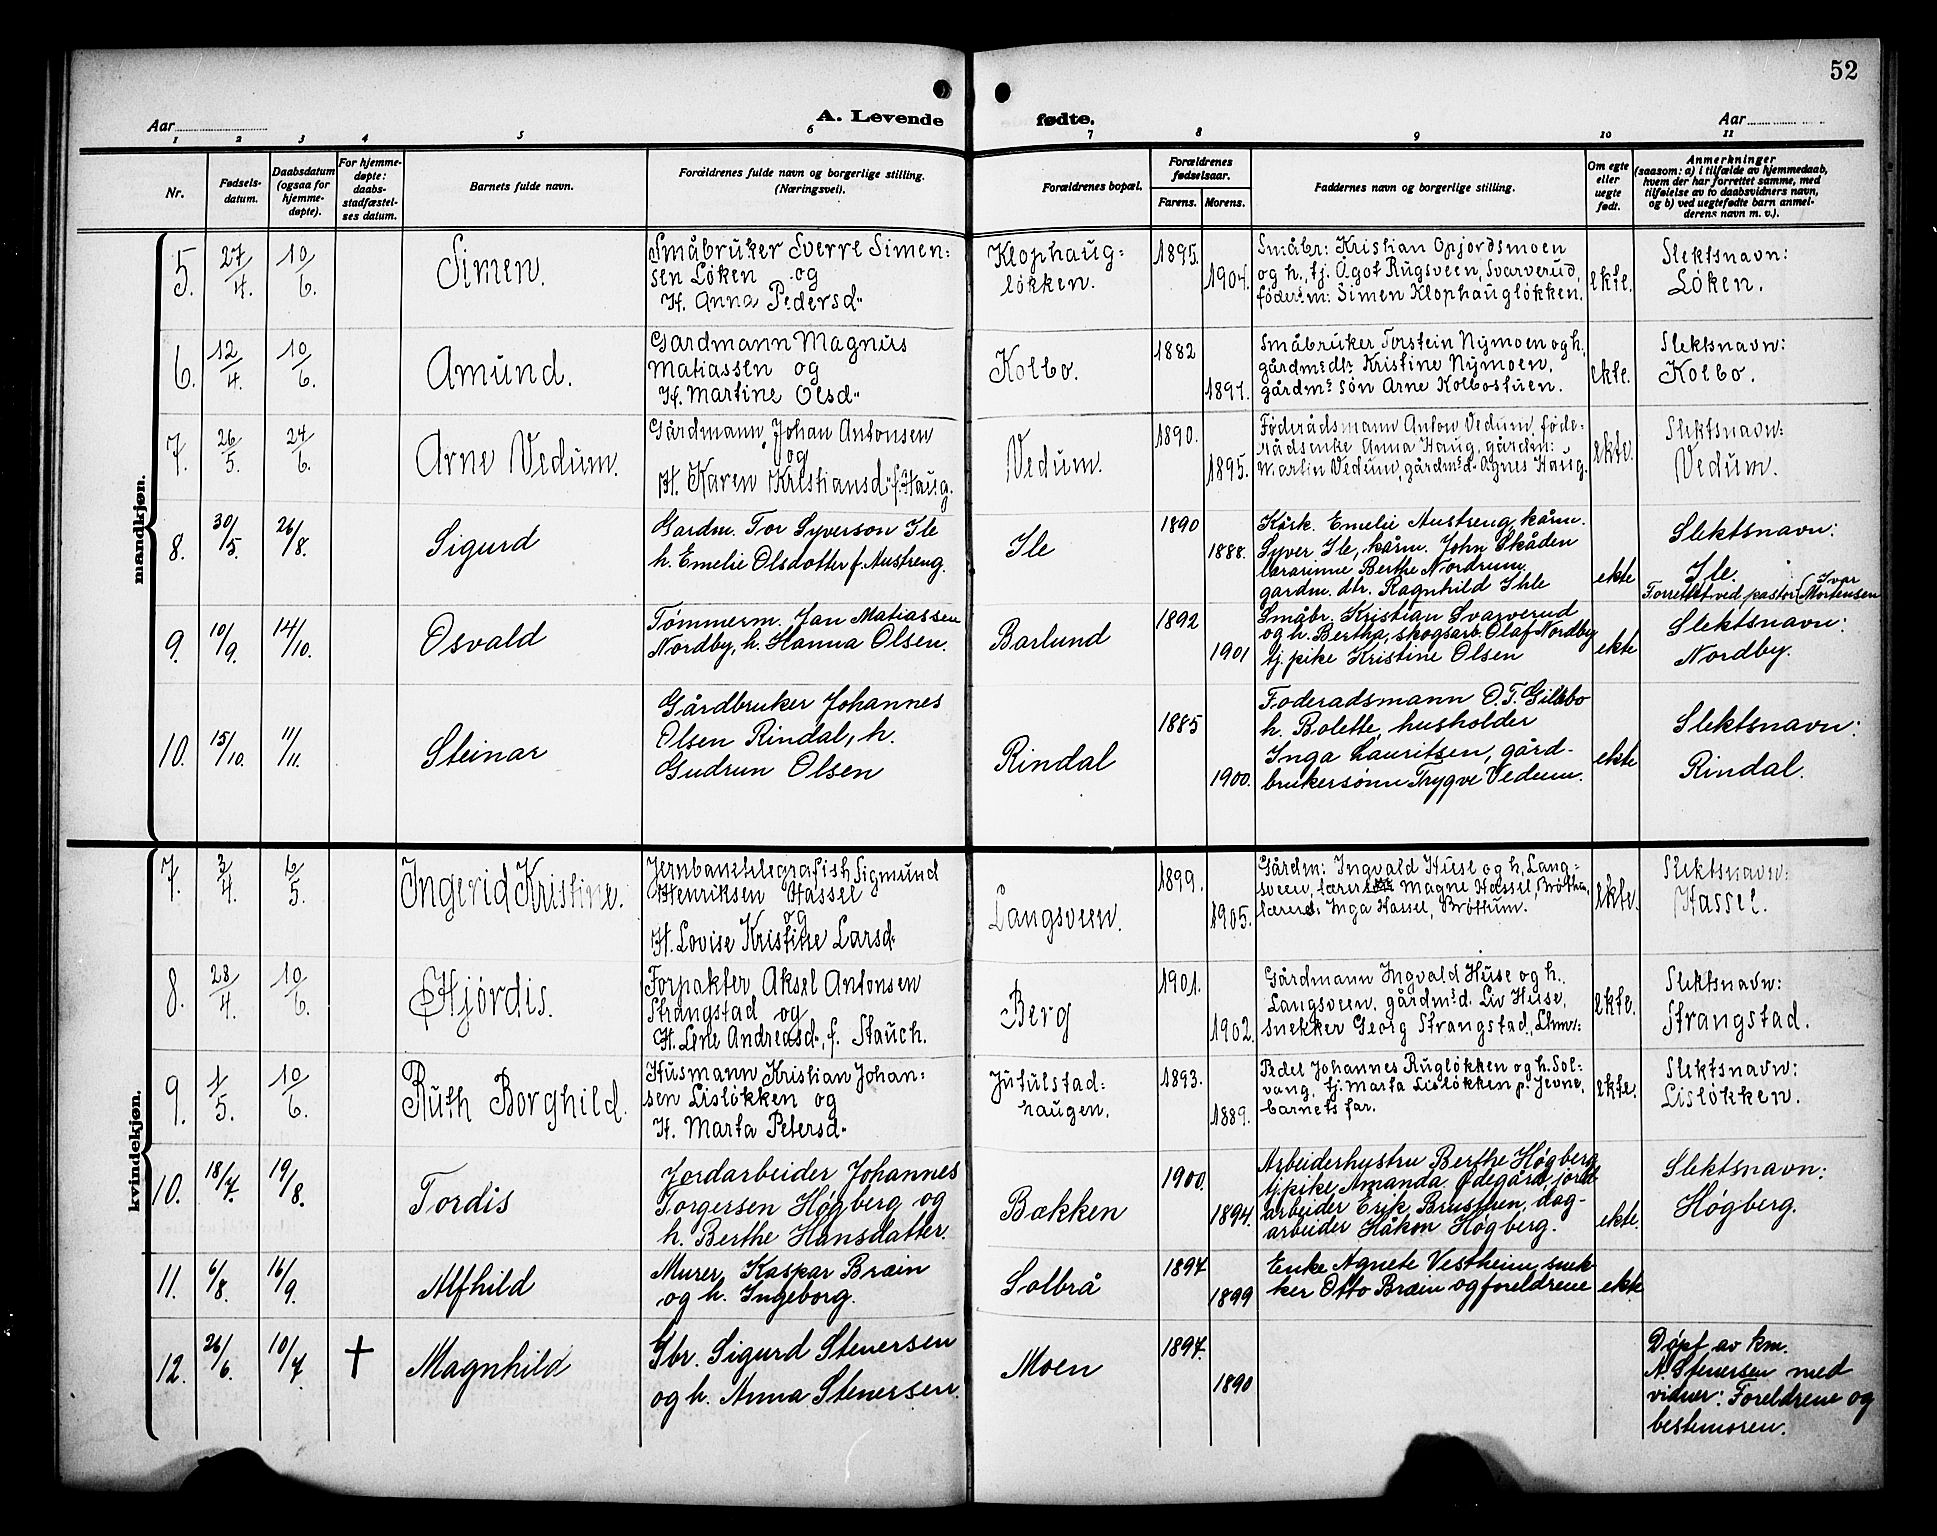 52
A. Levende fødte.
Aar
Aar
1 2 3 4 5 6 7 8 9 10 11
Nr.
Fødsels-
datum.
Daabsdatum
(ogsaa for
hjemme-
døpte).
For hjemme-
døpte:
daabs-
stadfæstel-
ses datum.
Barnets fulde navn.
Forældrenes fulde navn og borgerlige stilling.
(Næringsvei).
Forældrenes bopæl.
Forældrenes
fødselsaar.
Farens. Morens.
Faddernes navn og borgerlige stilling.
Om egte
eller
uegte
født.
Anmerkninger
(saasom: a) i tilfælde av hjemmedaab,
hvem der har forrettet samme, med
tilføielse av to daabsvidners navn,
og b) ved uegtefødte barn anmel-
derens navn m. v.).
mandkjøn.
5. 27/4. 10/6. Simen.
Småbruker Sverre Simen-
sen Löken og
H. Anna Pedersd..
Klophaug-
lökken.
1895. 1904.
Småbr: Kristian Opjordsmoen
og h., tj. Ågot Rugsveen, Svarverud,
föderm: Simen Klophauglökken.
ekte.
Slektsnavn:
Löken.
6. 12/4. 10/6. Amund.
Gardmann Magnus
Matiassen og
H. Martine Olsd..
Kolbo.
1882 1897.
Småbruker Torstein Nymoen og h.
gårdmsdtr Kristine Nymoen,
gårdms sön Arne Kolbostuen.
ekte.
Slektsnavn:
Kolbo.
7. 26/5. 24/6. Arne Vedum.
Gårdmann Johan Antonsen
og
H. Karen Kristiansd.. f. Haug.
Vedum.
1890. 1895.
Föderådsmann Anton Vedum, föde-
rådsenke Anna Haug, gårdm:
Martin Vedum, gårdmsd. Agnes Haug.
ekte.
Slektsnavn:
Vedum.
8. 30/5. 26/8. Sigurd
Gardm. Tor Syverson Ile
h. Emelie Olsdotter f. Austreng.
Ile
1890 1888.
Kårk. Emelie Austreng, kårm.
Syver Ile, kårm. John Skåden
lærarinne Berthe Nordrum.
gardm. dtr. Ragnhild Ihle
ekte
Slektsnavn:
Ile.
Forrettet ved pastor Ivar
Mortensen
9. 10/9. 14/10. Osvald
Tømmerm. Jan Matiassen
Nordby, h. Hanna Olsen.
Barlund
1892 1901
Småbr. Kristian Svarverud
og h. Bertha, skogsarb. Olaf Nordby
tj. pike Kristine Olsen
ekte
Slektsnavn:
Nordby.
10. 15/10. 11/11. Steinar
Gårdbruker Johannes
Olsen Rindal, h.
Gudrun Olsen
Rindal
1885 1900.
Foderadsmann O.T. Gillebo
h. Bolette, husholder
Inga Lauritsen, gård-
brukersønn Trygve Vedum.
ekte
Slektsnavn:
Rindal.
kvindekjøn.
7. 3/4. 6/5. Ingerid Kristine.
Jernbanetelegrafist Sigmund
Henriksen Hassel
og
H. Lovise Kristine Larsd.
Langsveen.
1899. 1905.
Gårdm: Ingvald Huse og h., Lang-
sveen, lærer Magne Hassel, Bröttum,
lærer: Inga Hassel, Bröttum.
ekte.
Slektsnavn:
Hassel.
8. 28/4. 10/6. Hjördis.
Forpakter Aksel Antonsen
Strangstad og
H. Lene Andreasd.., f. Stauch.
Berg
1901. 1902.
Gårdmann Ingvald Huse og h.
Langsveen, gårdmsd. Liv Huse,
snekker Georg Strangstad,
ekte.
Slektsnavn:
Strangstad.
9. 1/5. 10/6. Ruth Borghild.
Husmann Kristian Johan-
sen Lislökken og
H. Marta Petersd..
Jutulstad-
haugen.
1893. 1889.
Pedel Johannes Ruglökken og h. Sol-
vang, tj. Marta Lislökken p. Jevne,
barnets far.
ekte.
Slektsnavn:
Lislökken.
10. 18/7. 19/8. Tordis
Jordarbeider Johannes
Torgersen Högberg og
h. Berthe Hansdatter.
Bakken
1900. 1894.
Arbeiderhustru Berthe Högberg
tj. pike Amanda Ödegård, jord-
arbeider Erik Brusveen, dag-
arbeider Håkon Högberg.
ekte.
Slektsnavn:
Högberg.
11. 6/8. 16/9. Alfhild
Murer Kaspar Bræin
og h. Ingeborg.
Solbrå
1897 1899
Enke Agnete Vestheim, snek-
ker Otto Bræin og foreldrene
ekte
12. 26/6. 10/7. + Magnhild
Gbr. Sigurd Stenersen
og h. Anna Stenersen.
Moen
1897. 1890
Døpt av km.
N. Stenersen med
vidner: Foreldrene og
bestemoren.